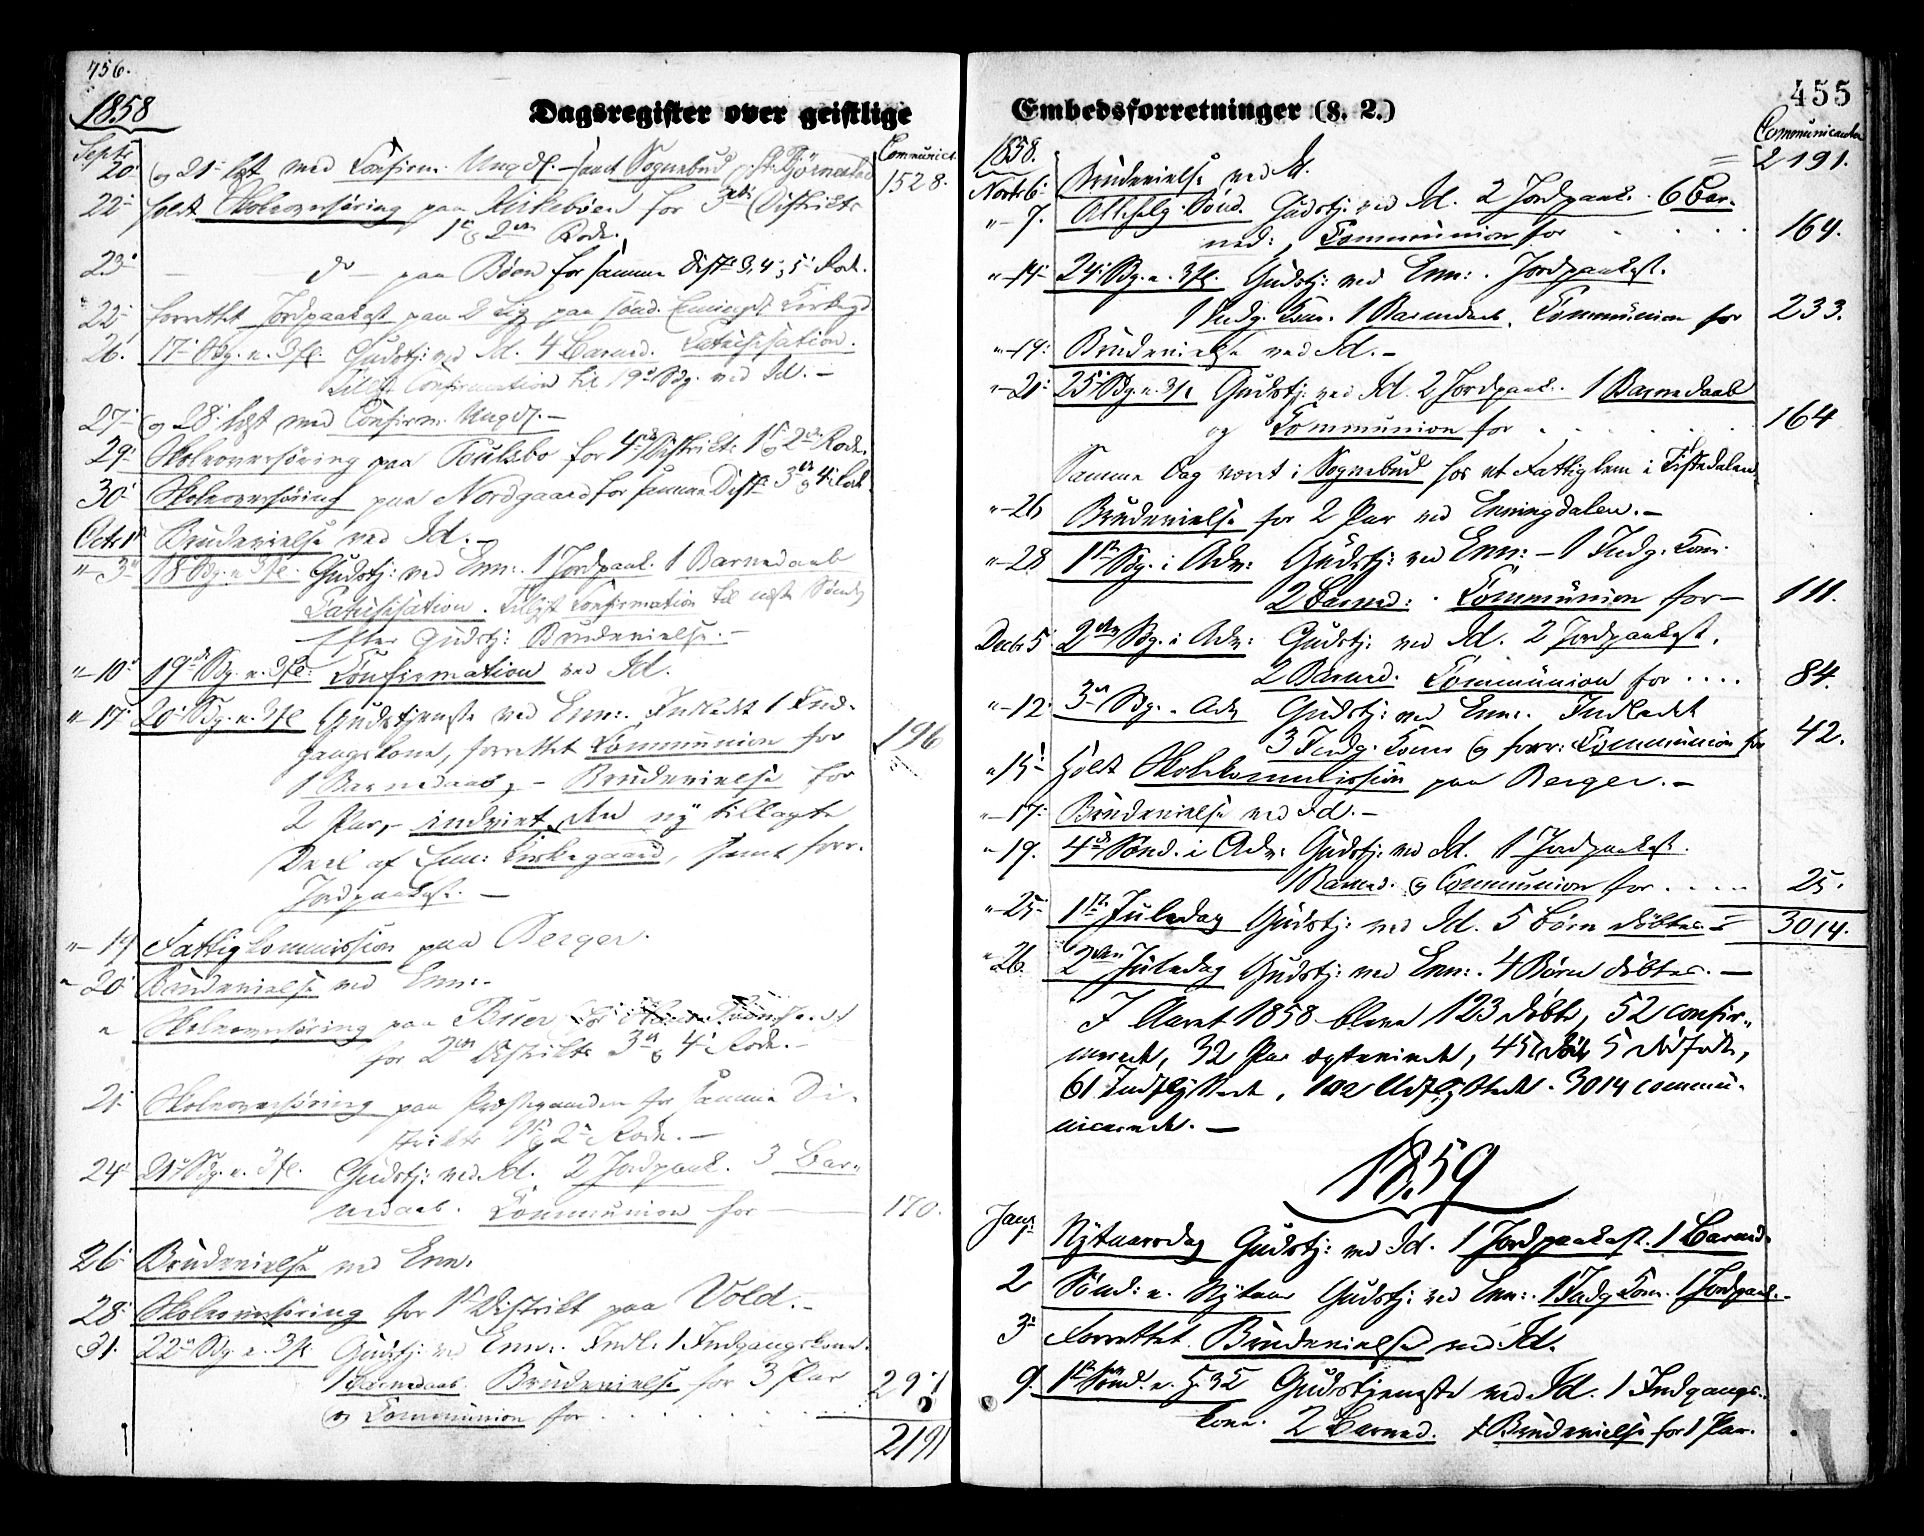 456.
1858
Dagsregister over geistlige
Communict.
Septr 20 og 21 læst med Confirm: Ungd. samt Sognebud 1528.
22 holdt Skoleoverhöring paa Kirkebøen for 3die Distrikts
1ste og 2den Rode.
23 — do — paa Bøen for samme Distr. 3, 4, 5 Rode.
22 forrettet Jordpaakast paa 2 Lig paa
26. 17 Sdg. e. 3fl. Gudstj: ved Id. 4 Barned. Catechisation.
Tillyst Confirmation til 19de Sdg. ved Id. —
27 og 28 læst med Confirm. Ungd. —
29 Skoleoverhöring paa Poulsbo for 4de Distrikts 1ste og 2den Rode.
30 Skoleoverhöring paa Nordgaard for samme Distr. 3die og 4 Rode.
Octr 1 Brudevielse ved Id. —
"— 3 18 Sdg. e. 3fl. Gudstj: ved Enn:. 1 Jordpaak. 1 Barnedaab
Catechisation. Tillyst Confirmation til næste Sönd.
Efter Gudstj: Brudevielse. —
"— 10 19de Sdg. e. 3fl: Confirmation ved Id.
"— 17 20 Sdg. e. 3fl Gudstjeneste ved Enn:. Indledt 1 Ind-
gangskone, forrettet Communion for 196
1 Barnedaab, — Brudevielse for
2 Par, — indviet den ny tillagte
Deel af Enn: Kirkegaard, samt forr.
Jordpaakast. —
"— 19 Fattigkommission paa Berger.
"— 20 Brudevielse ved Enn:.
" Skoleoverhöring paa Buer
for 2den Distrikts 3die og 4 Rode. —
21 Skoleoverhöring paa Præstegaarden for samme Di-
strikts 1ste og 2den Rode. —
24 21 Sdg. e. 3fl. Gudstj: ved Id. 2 Jordpaak. 3 Bar-
nedaab. Communion for — 170.
26 Brudevielse ved Enn.
28 Skoleoverhöring for 1ste Distrikt paa Vold. —
31. 22 Sdg. e. 3fl. Gudstj: ved Enn:. Indl. 1 Indgangskone.
1 Barnedaab. Brudevielse for 3 Par 297
og Communion for . . . . . . .
2191
455
Embedsforretninger (§. 2.)
Communicanter
1858. = 2191.
Novbr 6 Brudevielse ved Id.
"— 7. Allehelg. Sönd. Gudstj: ved Id. 2 Jordpaak. 6 Bar-
ned:, Communion for . . . . 164.
"— 14 24 Sdg. e. 3fl. Gudstj: ved Enn:. Jordpaakast.
1 Indg. Kone. 1 Barnedaab. Communion for 233.
"— 19: Brudevielse ved Id. —
"— 21: 25 Sdg. e. 3fl Gudstj: ved Id. 2 Jordpaak. 1 Barnedaab
og Communion for . . . . . . 164
Samme Dag været i Sognebud hos et Fattiglem i Tistedalen.
"— 26 Brudevielse for 2 Par ved Enningdalen. —
"— 28 1ste Sdg. i Adv: Gudstj: ved Enn: — 1 Indg. Kone.
2 Barned: . Communion for — 111.
Decbr 5 2den Sdg. i Adv: Gudstj: ved Id. 2 Jordpaakast.
2 Barned. Communion for . . . . 84.
"— 12 3die Sdg. i Adv Gudstj: ved Enn:. Indledet
3 Indg. Koner og forr: Communion for 42.
"— 15 holdt Skolekommission paa Berger. —
"— 17: Brudevielse ved Id. —
"— 19. 4de Sönd. i Adv: Gudstj: ved Id. 1 Jordpaakast.
1 Barned. og Communion for . . . . 25.
"— 25 1ste Juledag Gudstj: ved Id. 5 Börn döbtes. = 3014.
" 26. 2den Juledag Gudstj: ved Enn:. 4 Børn döbtes. —
I Aaret 1858 bleve 123 döbte, 52 confir-
merede, 32 Par egteviede, 45 döde 5 dödfödte,
61 Indflyttede, 102 Udflyttede. 3014 commu-
nicerede. —
1859
Janr 1 Nytaarsdag Gudstj: ved Id. 1 Jordpaakast. 1 Barned.
2 Sönd: e. Nytaar Gudstj: ved Enn:. 1 Indg Kone. 1 Jordpaak.
3 Forrettet Brudevielse ved Id.
9. 1ste Sönd. e. H. 3 K Gudstjeneste ved Id. 1 Indgangs-
kone. 2 Barned. & Brudevielse for 1 Par.